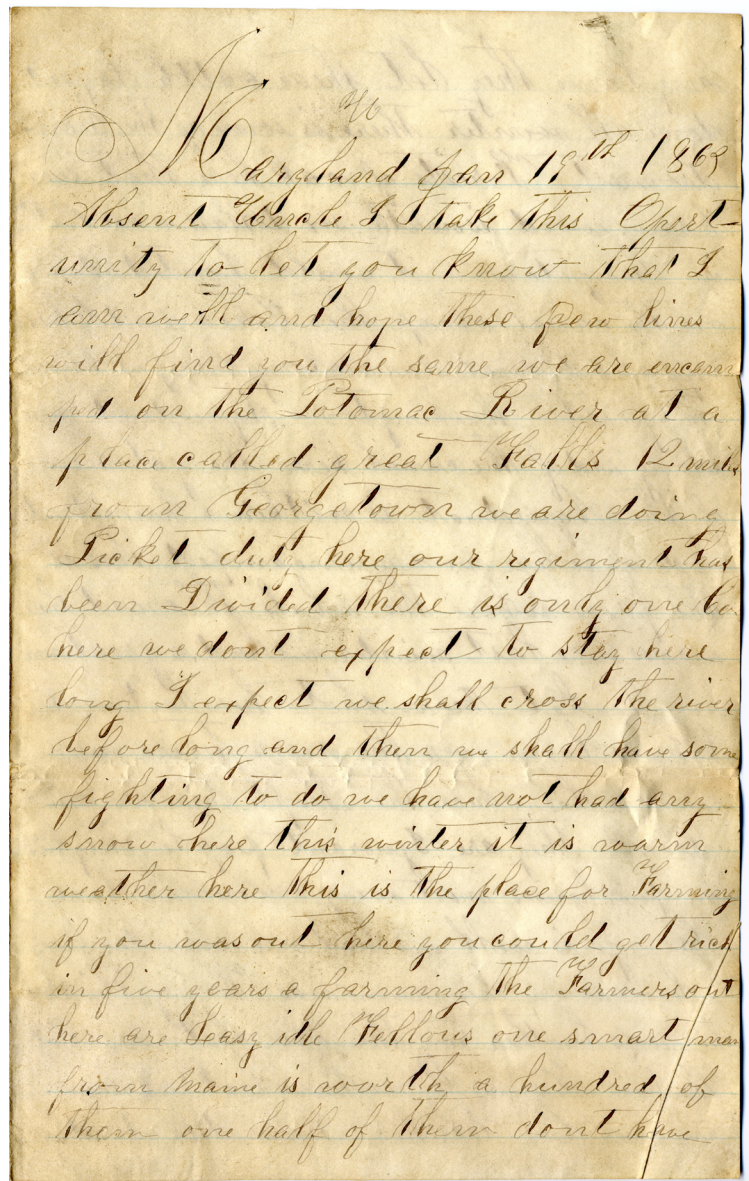 Maryland Jan 19th 1863
Absent Uncle I take this Opert-
unity to let you know that I
am well and hope these few lines
will find you the same we are encam
ped on the Potomac River at a
place called great Falls 12 miles
from Georgetown we are doing
Picket duty here our regiment has
been Divided there is only one Co
here we dont expect to stay here
long I expect we shall cross the river
before long and then we shall have some
fighting to do we have not had any
snow here this winter it is warm
weather here this is the place for Farming
if you was out here you could get rich
in five years a farming the Farmers out
here are leasy idle Fellous one smart man
from maine is worth a hundred of
them one half of them dont have